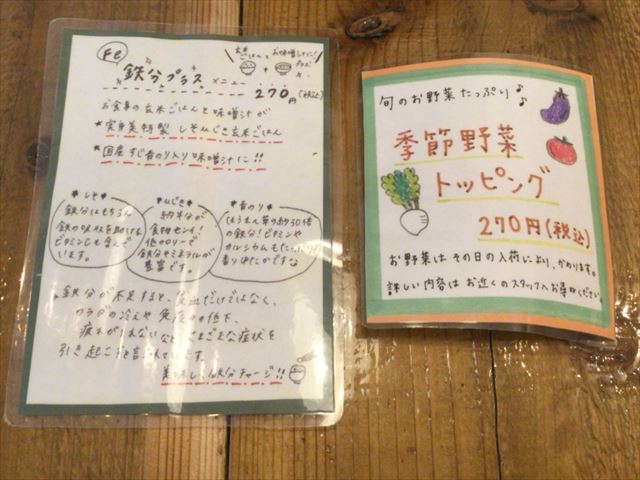 Fe
鉄分プラスメニュー
玄米ごはん お味噌汁に!
プラス
270円(税込)
お食事の玄米ごはんと味噌汁が
*実身美特製 しそひじき玄米ごはん
*国産すじ青のり入り味噌汁に!!
*しそ*
鉄分はもちろん
鉄の吸収を助ける
ビタミンCも含んで
います。
*ひじき*
食物センイ!
低カロリーで
鉄分やミネラルが
豊富です。
*青のり*
ほうれん草の約30倍
の鉄分!ビタミンや
カルシウムも
香りゆたかです
鉄分が不足すると、貧血だけではなく、
カラダの冷えや免疫力の低下、
疲れがとれないなど、さまざまな症状を
引き起こすと言われています。
美味しく鉄分チャージ!!
旬のお野菜たっぷり♪
季節野菜
トッピング
270円(税込)
お野菜はその日の入荷により、かわります。
詳しい内容はお近くのスタッフへお尋ねください